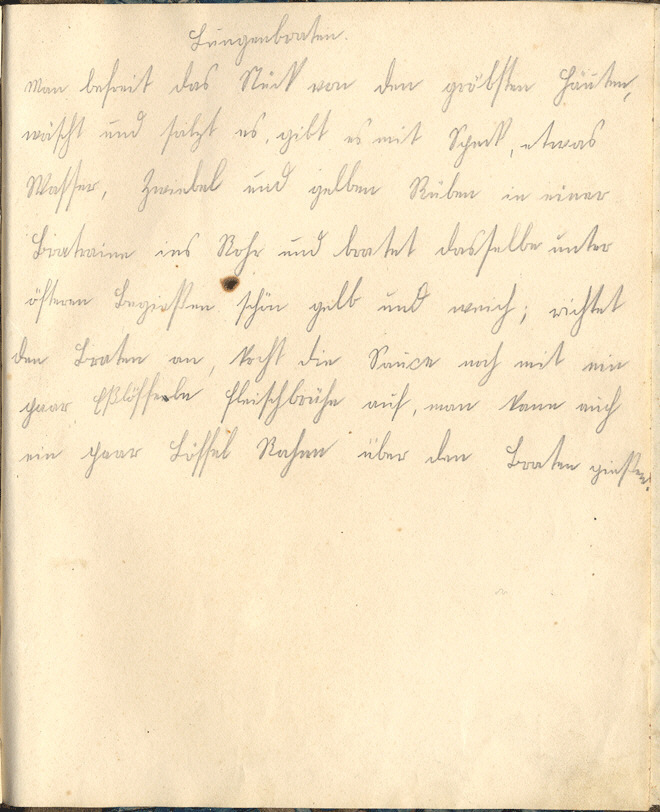 Lungenbraten.
Man befreit das Stück von den gröbsten Häuten,
wäscht und salzt es, gibt es mit Speck, etwas
Wasser, Zwiebel und gelben Rüben in einer
Bratraine ins Rohr und bratet dasselbe unter
öfteren Begießen schön gelb und weich; richtet
den Braten an, kocht die Sauce noch mit ein
paar Eßlöffeln Fleischbrühe auf, man kann auch
ein paar Löffel Rahm über den Braten gießen.